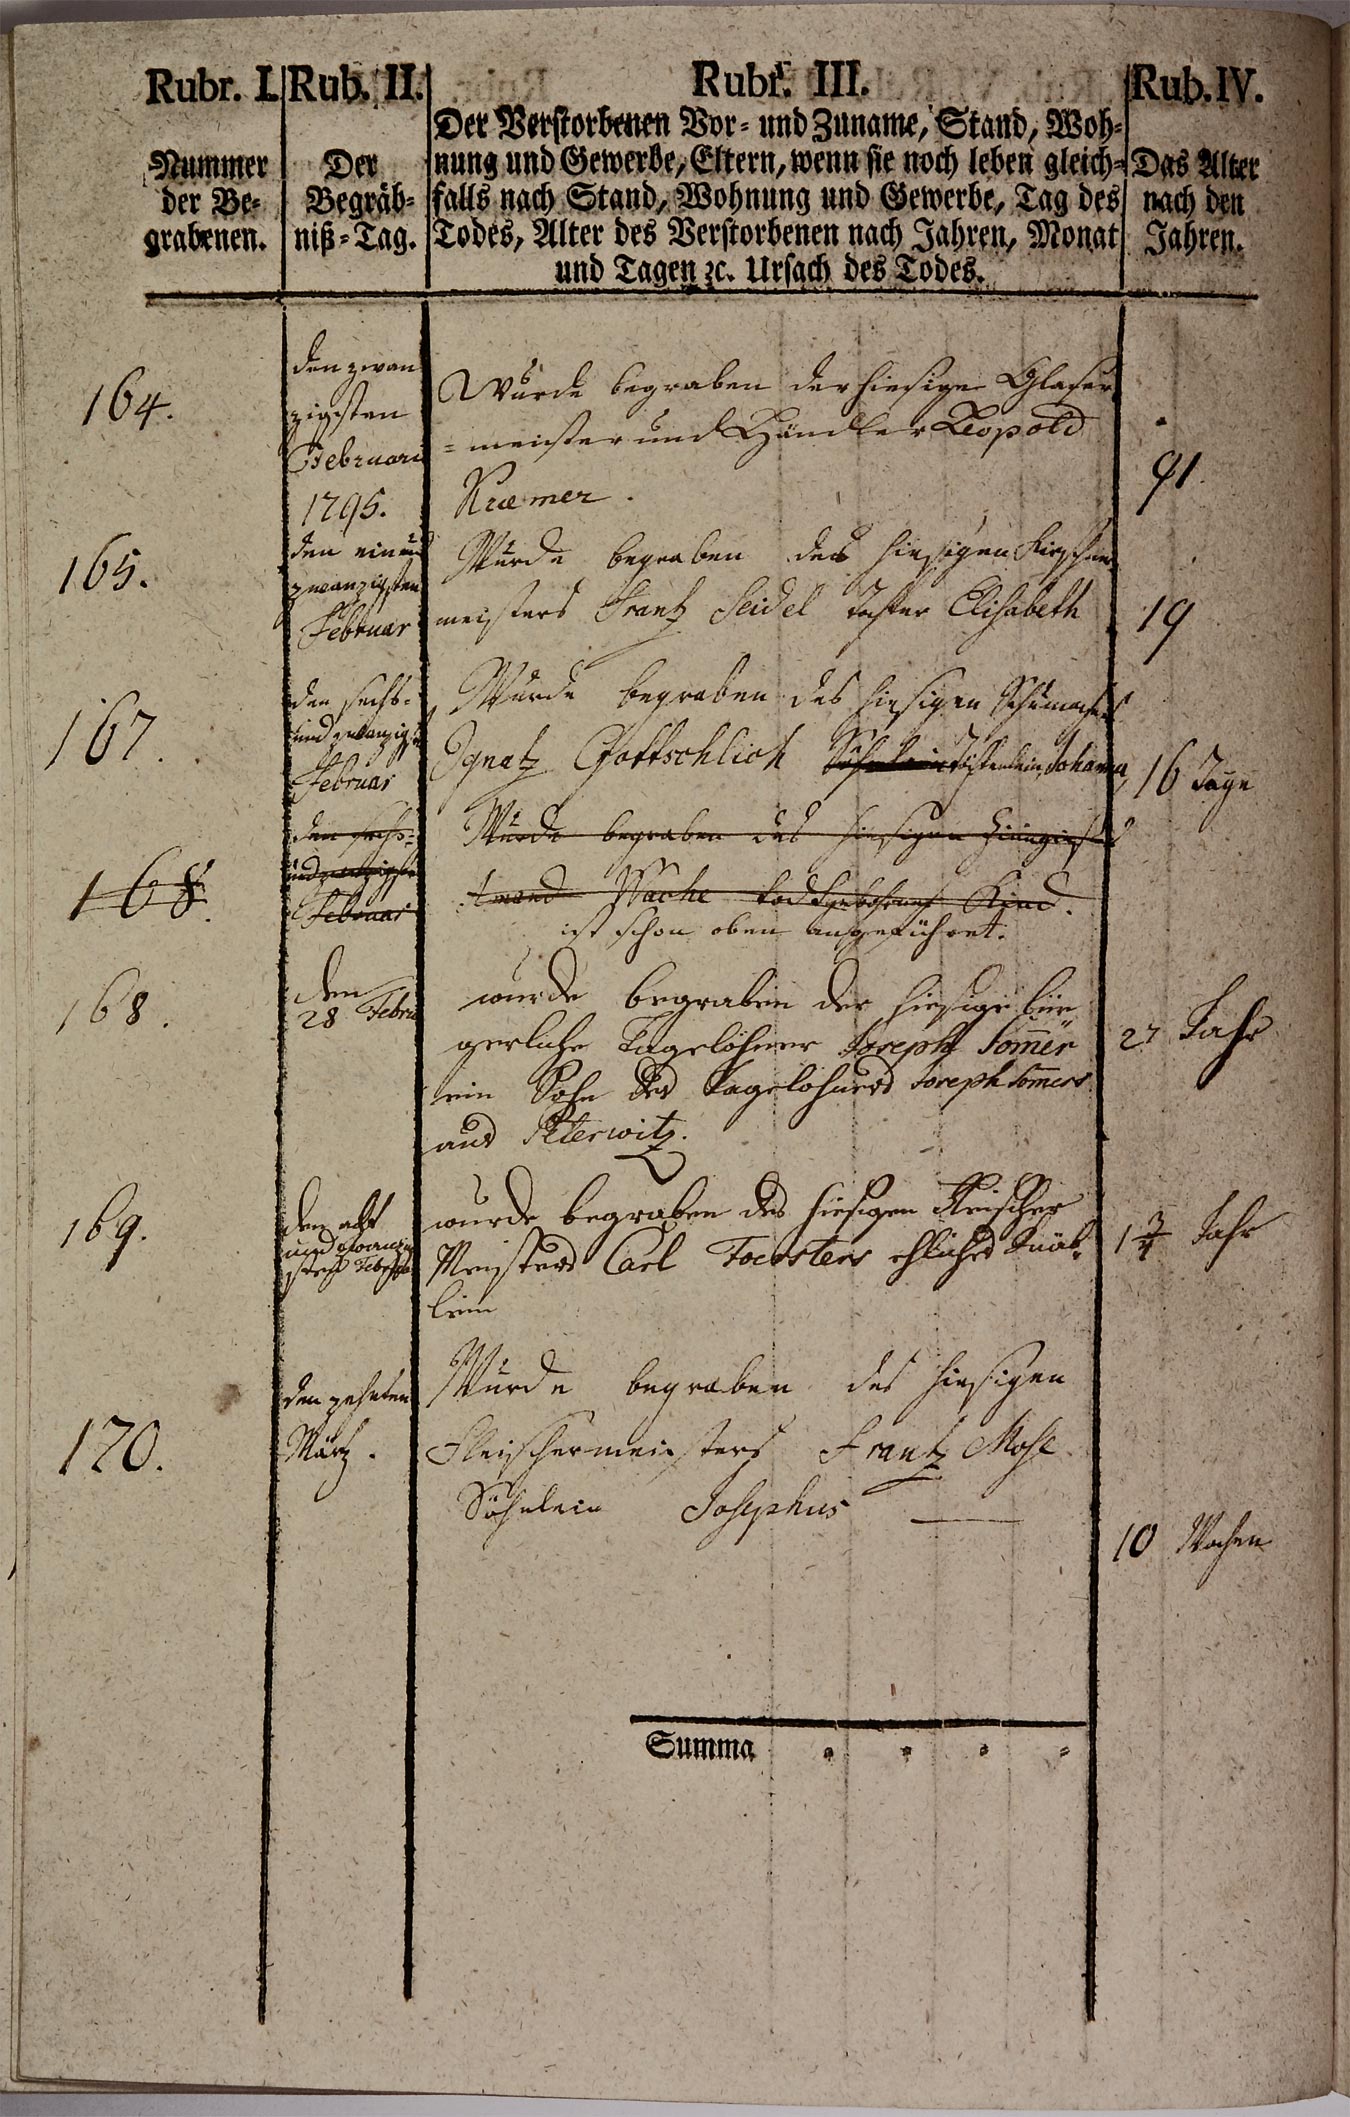 Rubr. I. Rub. II. Rubr. III. Rub. IV.
Nummer
der Be=
grabenen.
Der
Begräb=
niß=Tag.
Der Verstorbenen Vor= und Zuname, Stand, Woh=
nung und Gewerbe, Eltern, wenn sie noch leben gleich=
falls nach Stand, Wohnung und Gewerbe, Tag des
Todes, Alter des Verstorbenen nach Jahren, Monat
und Tagen ꝛc. Ursach des Todes.
Das Alter
nach den
Jahren.
164.
den zwan
zigsten
Februari
1795.
Wurde begraben der hiesige Glaser
=meister und Händler Leopold
Kræmer.
91.
165.
den ein und
zwanzigsten
Februar
Wurde begraben des hiesigen
meisters Frantz Seidel Tochter Elisabeth
19
167.
den sechs=
und zwanzigst
Februar
Wurde begraben des hiesigen Schumachers
Ignatz Gottschlich Söhnlein Töchterlein Johanna,
16 Tage
168.
den sechs=
und zwanzigste
Februar
Wurde begraben des hiesigen
Amand Wache todtgebohrnes Kind.
ist schon oben angeführet.
168.
den
28 Febru
wurde begraben der hiesige bür
gerliche Tagelöhner Joseph Som̄er
ein Sohn des Tagelohners Joseph Som̄ers
aus Peterwitz.
27 Jahr
169.
den acht
und zwanzig
sten Februar
wurde begraben des hiesigen Fleischer
Meisters Carl Foersters ehliches Knäb=
lein
1 3/4 Jahr
170.
den zehnten
Märtz.
Wurde begraben des hiesigen
Fleischermeisters Frantz Mose
Söhnlein Josephus
10 Wochen
Summa